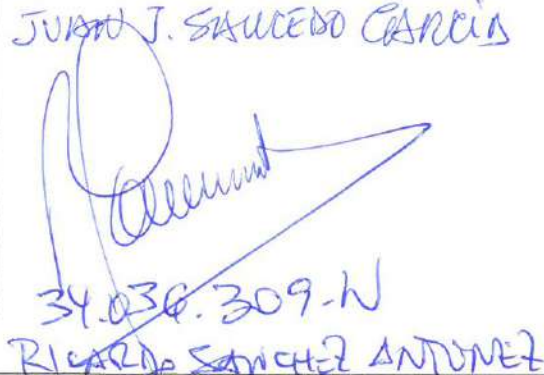 JUAN J. SAUCEDO GARCÍA
34.036.309-W
RICARDO SANCHEZ ANTUNEZ